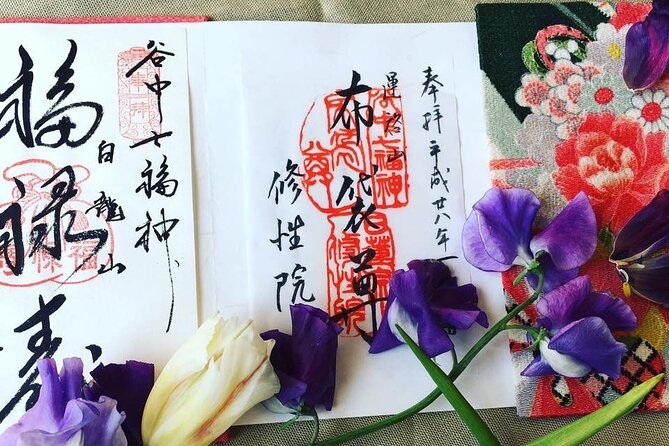 奉拝 平成廿八年一
運啓山
布袋尊
修性院
谷中七福神
白龍山
福禄寿